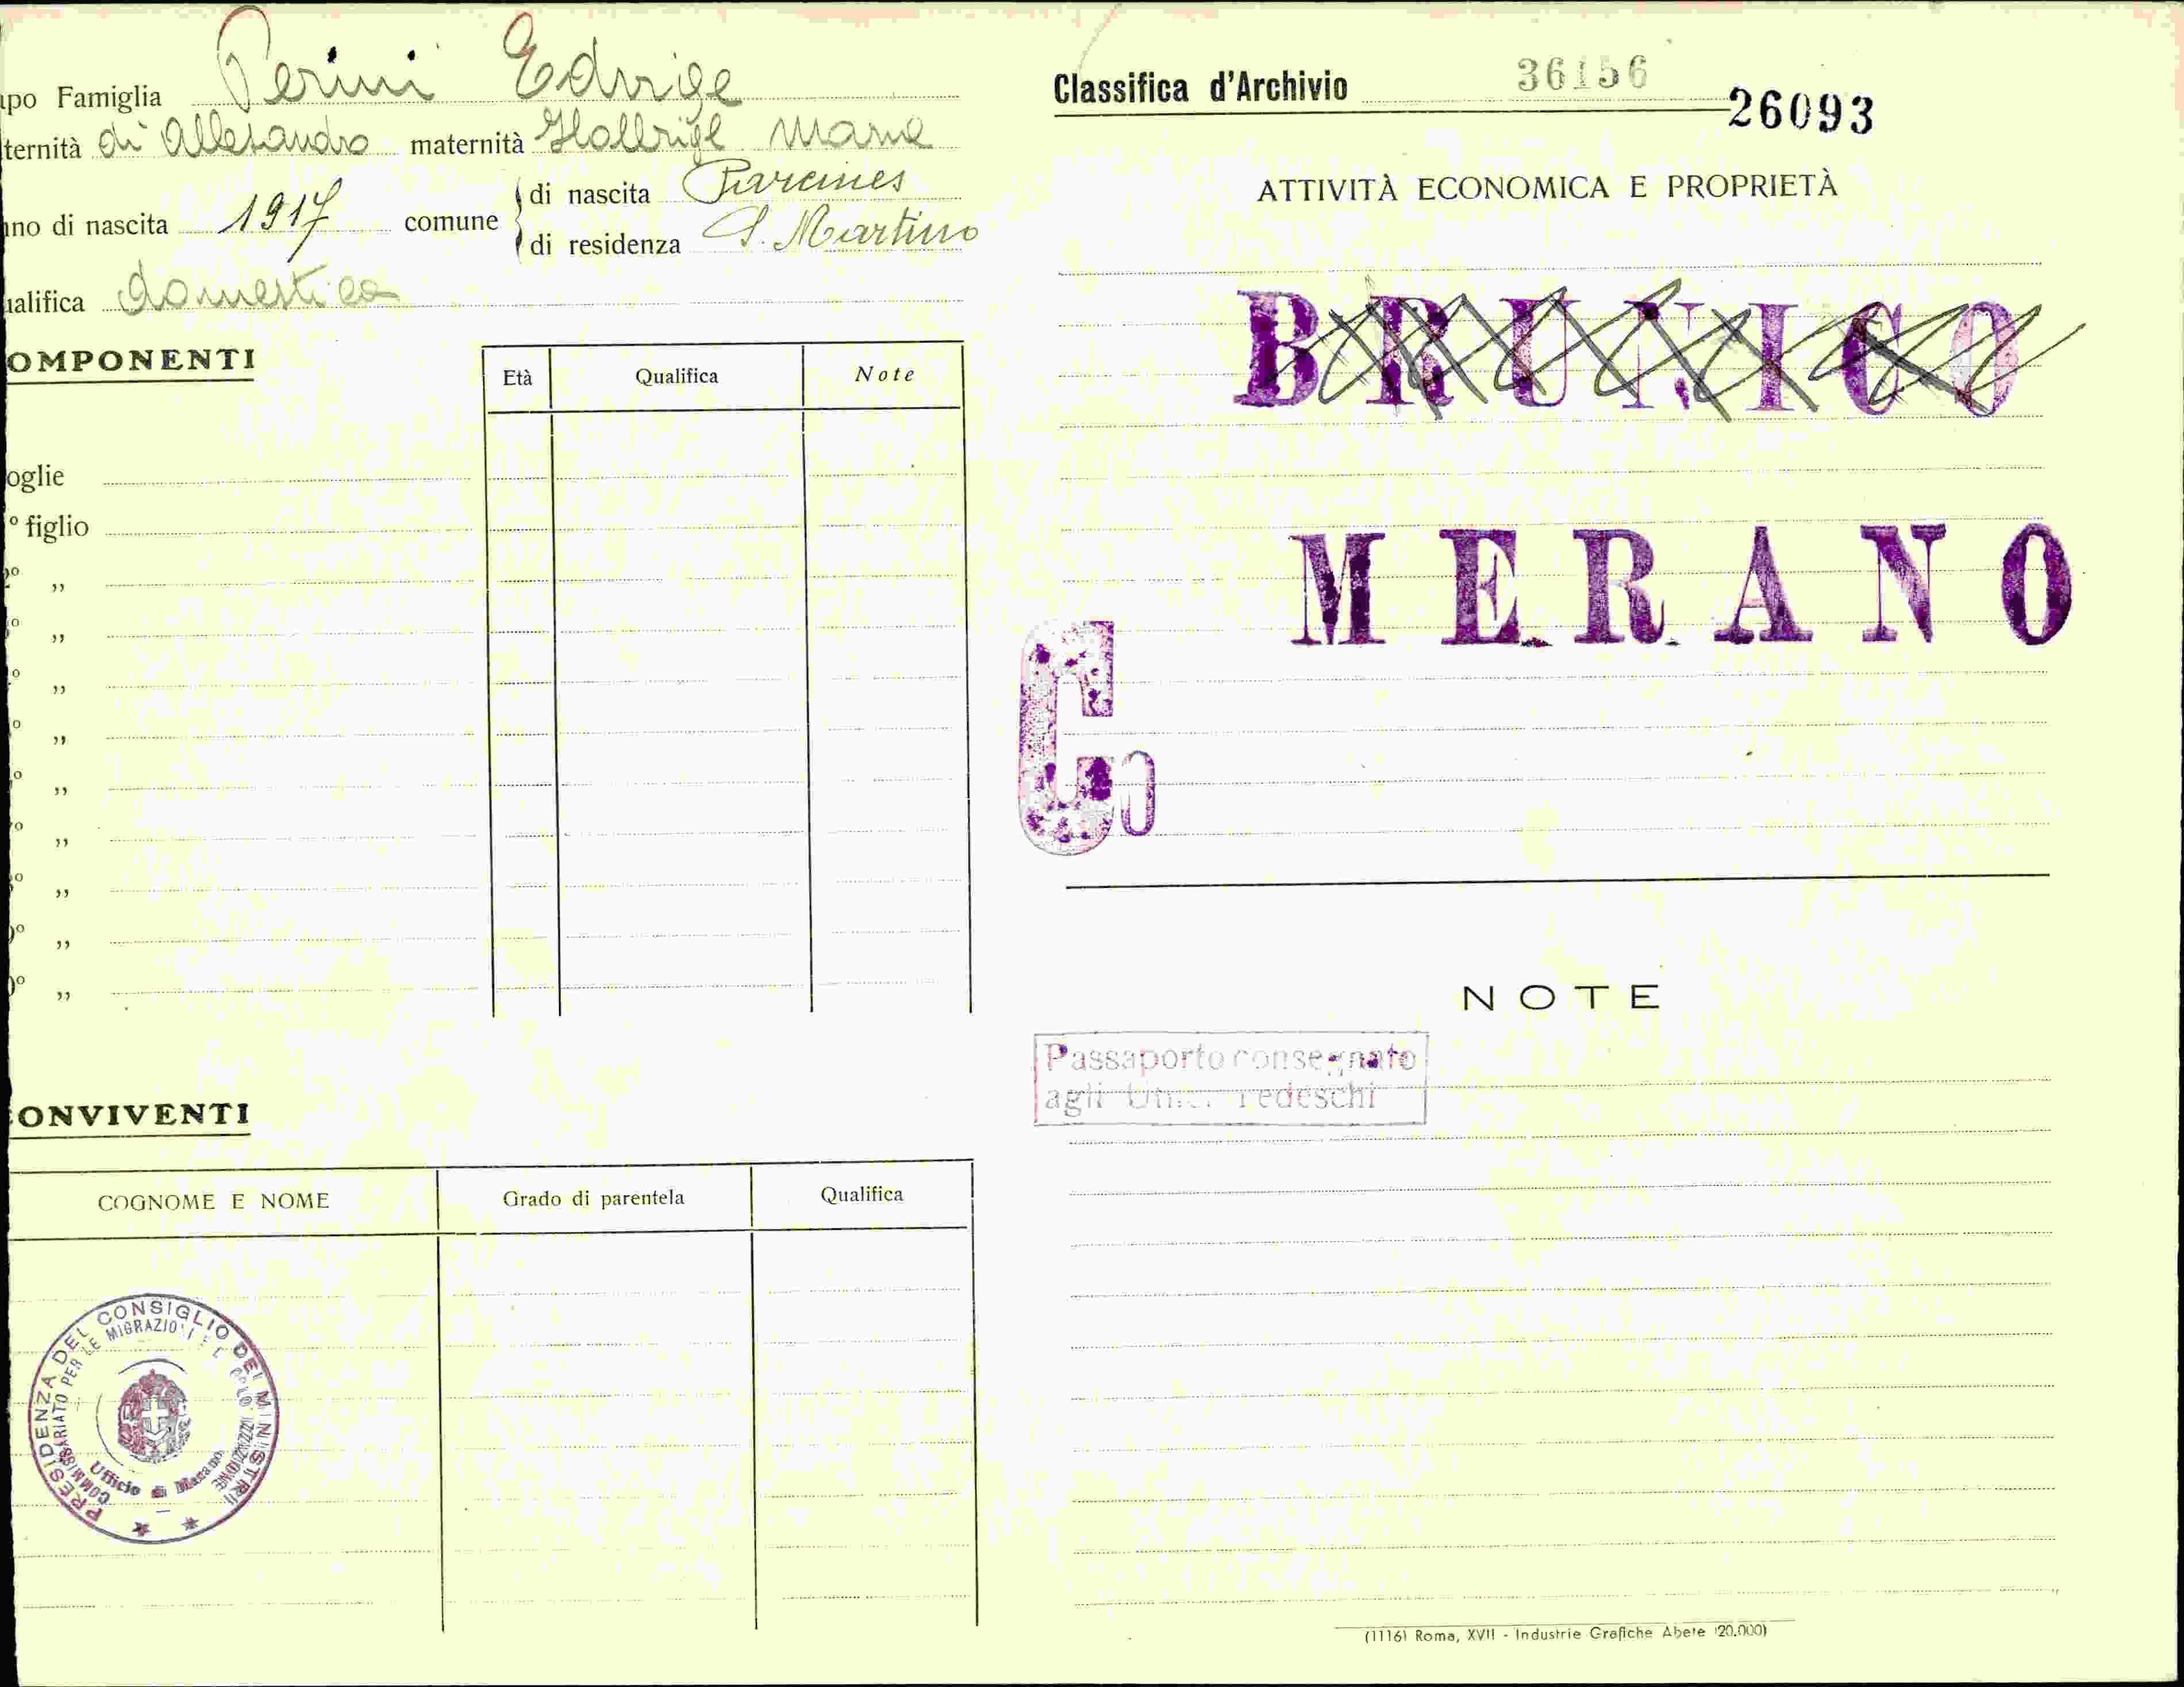 apo Famiglia Perini Edvige
ternità di Allesandro maternità Hollrigl Maria
nno di nascita 1917 comune di nascita Parcines
di residenza S. Martino
ualifica domestica
OMPONENTI
Età Qualifica Note
oglie
º figlio
2º "
º "
º "
º "
º "
º "
º "
0º "
0º "
CONVIVENTI
COGNOME E NOME Grado di parentela Qualifica
PRESIDENZA DEL CONSIGLIO DEI MINISTRI
COMMISSARIATO PER LE MIGRAZIONI E LA COLONIZZAZIONE
Ufficio di Merano
Classifica d'Archivio 36156
26093
ATTIVITÀ ECONOMICA E PROPRIETÀ
BRUNICO
MERANO
C
NOTE
Passaporto consegnato
agli Uffici Tedeschi
(1116) Roma, XVII - Industrie Grafiche Abete (20.000)